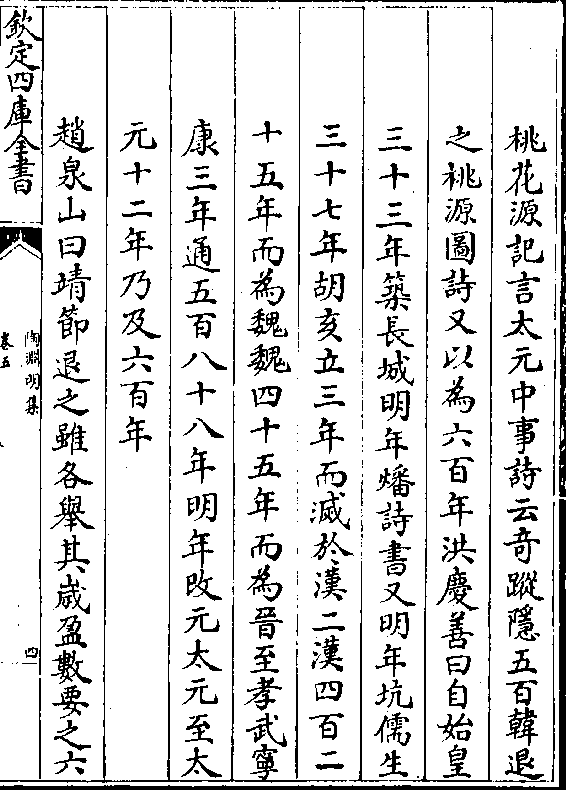 桃花源記言太元中事詩云奇蹤隱五百韓退
之桃源圖詩又以為六百年洪慶善曰自始皇
三十三年築長城明年燔詩書又明年坑儒生
三十七年胡亥立三年而滅於漢二漢四百二
十五年而為魏魏四十五年而為晉至孝武寧
康三年通五百八十八年明年改元太元至太
元十二年乃及六百年
趙泉山曰靖節退之雖各舉其歲盈數要之六
欽定四庫全書
陶淵明集
卷五
四